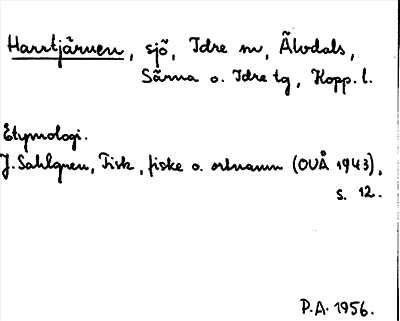 Harrtjärnen, sjö, Idre sn, Älvdals,
Särna o. Idre tg, Kopp. l.
Etymologi.
J. Sahlgren, Fisk, fiske o. ortnamn (OUÅ 1943),
s. 12.
P.A. 1956.